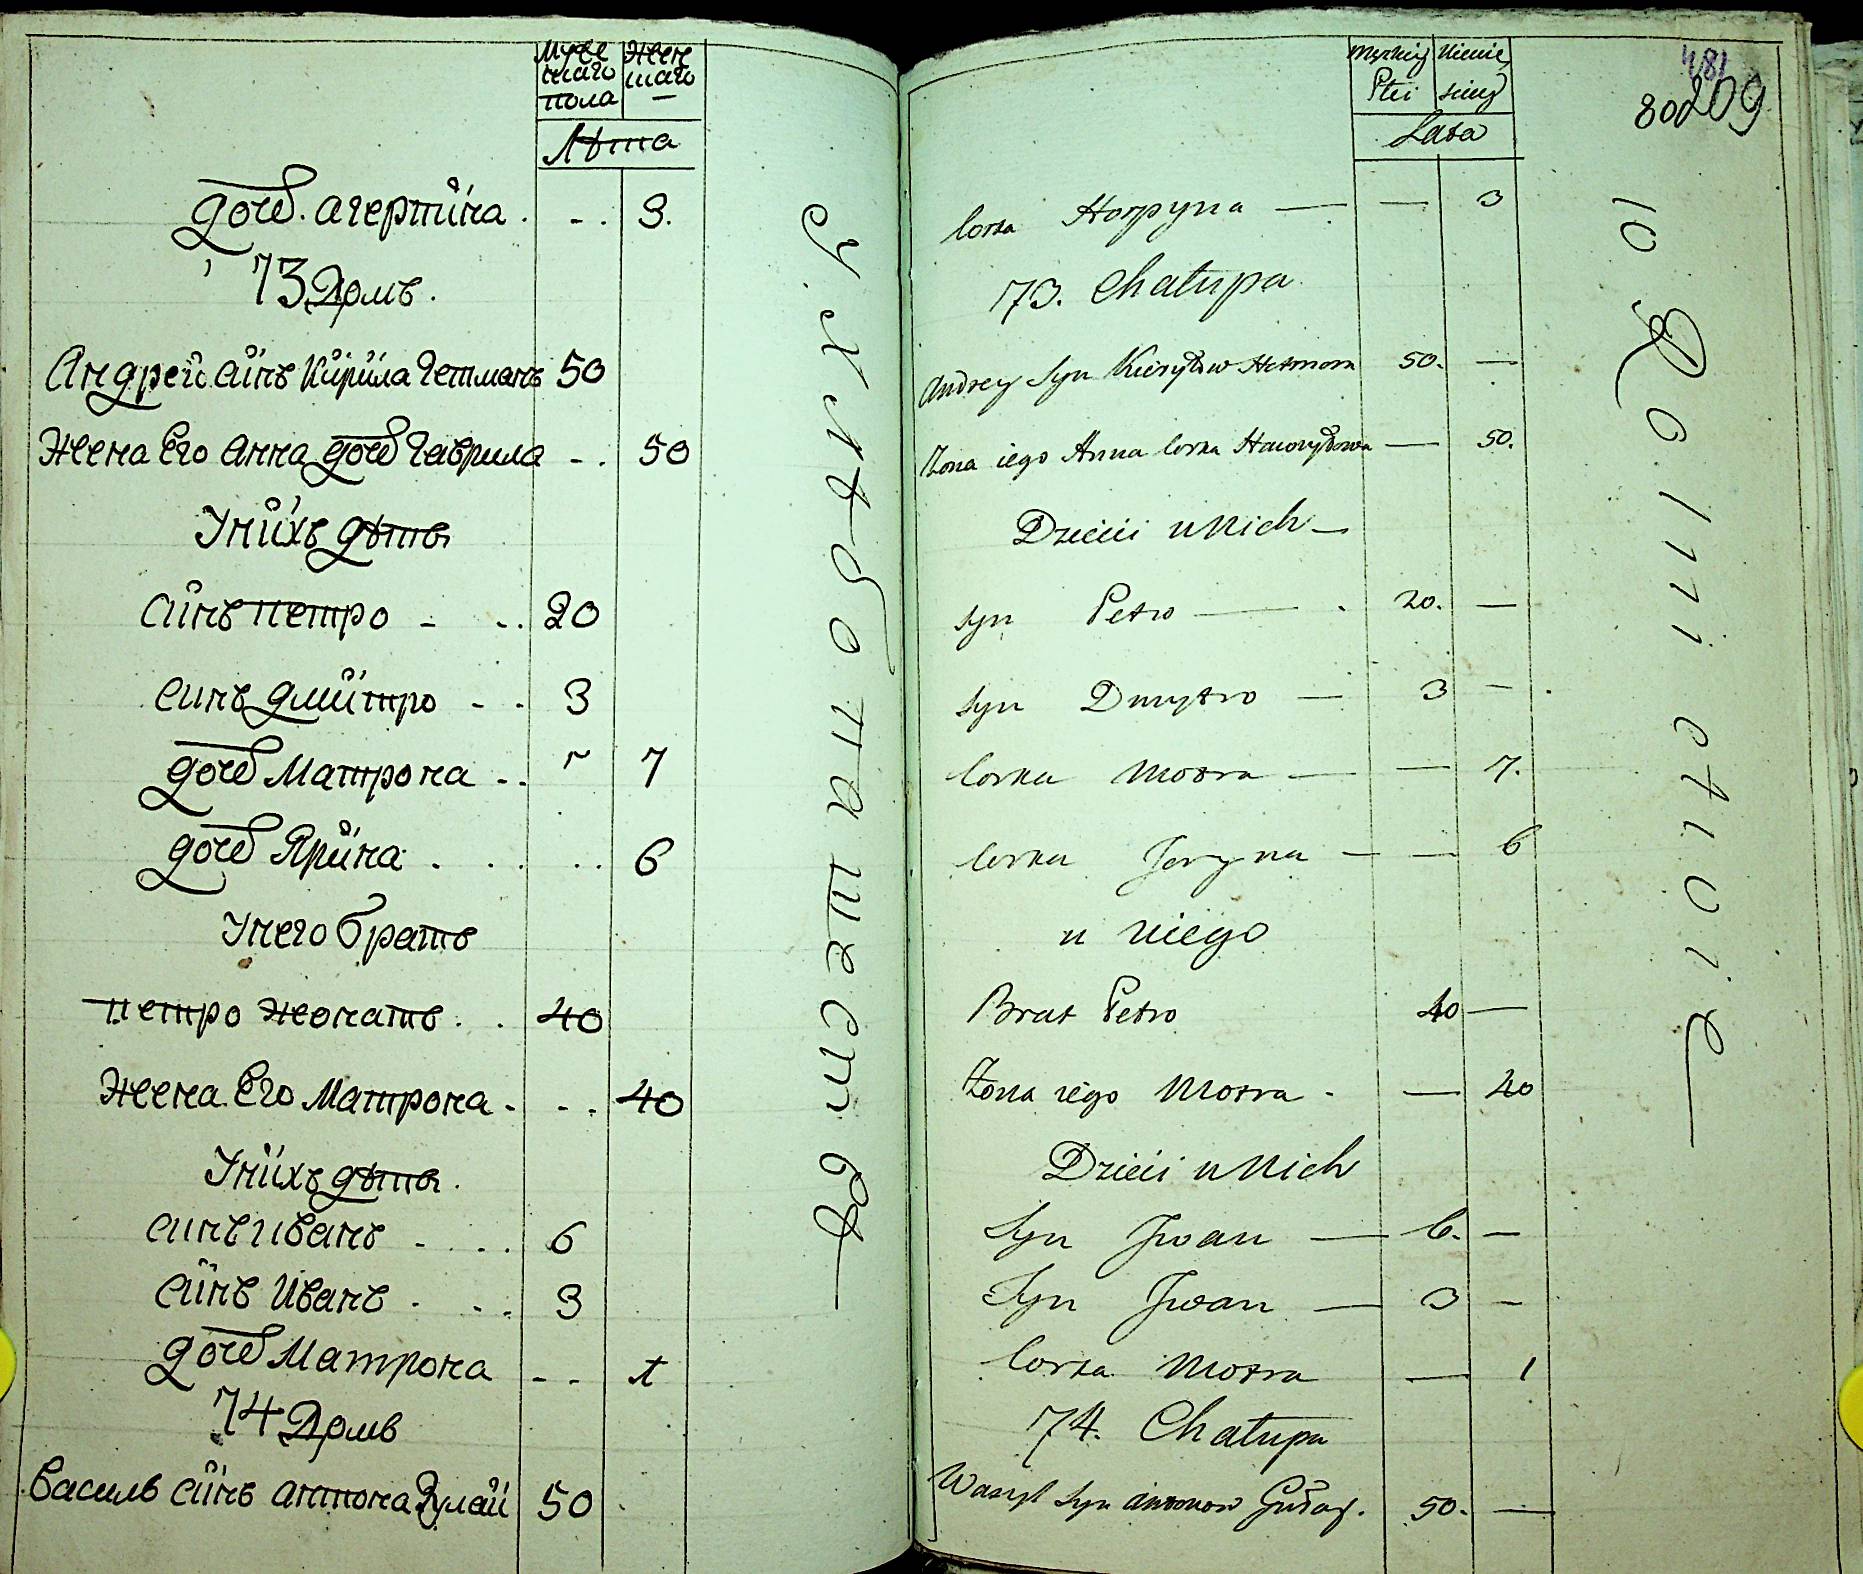 Муже Жен
скаго скаго
пола
Лѣта
дочь агерпіна 3.
73 Домъ.
Андрей сінъ Кіріла Гетманъ 50
Жена Его анна дочь Гаврила 50
Уніхъ дѣти
сінъ петро 20
синъ дмитро 3
дочь Матрона 7
дочь Яріна 6
Унего братъ
петро жонатъ 40
Жена Его Матрона 40
Уніхъ дѣти
синъ иванъ 6
сінъ Иванъ 3
дочь Матрона 1
74 Домъ
Василь сінъ антона Гулай 50
Męzkiey
Płci
Lata
481
80 209
Corka Horpyna — — 3
73. Chałupa
Andrey Syn Kieryłow Hetman 50. —
Żona iego Anna Corka Hawryłowa — 50.
Dzieci u Nich —
Syn Petro — 20. —
Syn Dmytro — 3 —
Corka Motra — — 7.
Corka Jeryna — — 6
u niego
Brat Petro 40 —
Żona iego Motra — 40
Dzieci u Nich
Syn Jwan — 6. —
Syn Jwan — 3 —
Corka Motra — 1
74. Chałupa
Wasyl Syn Antonow Gułay. 50. —